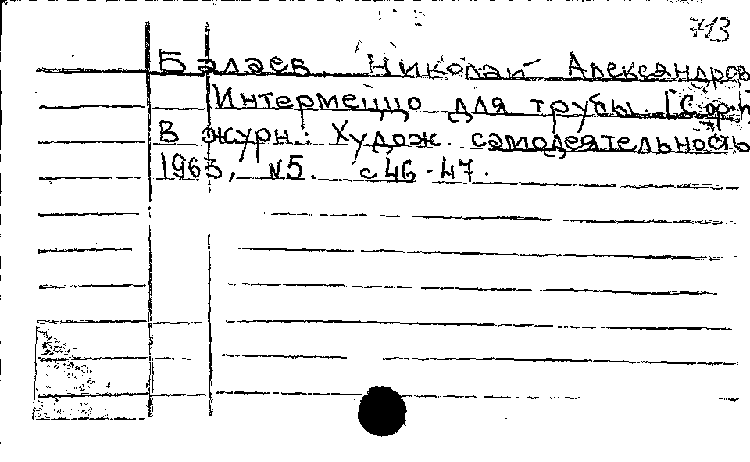 713
Балаев Николай Александров
Интермеццо для трубы.
В журн.: Худож. самодеятельность
1963, №5. с 46-47.